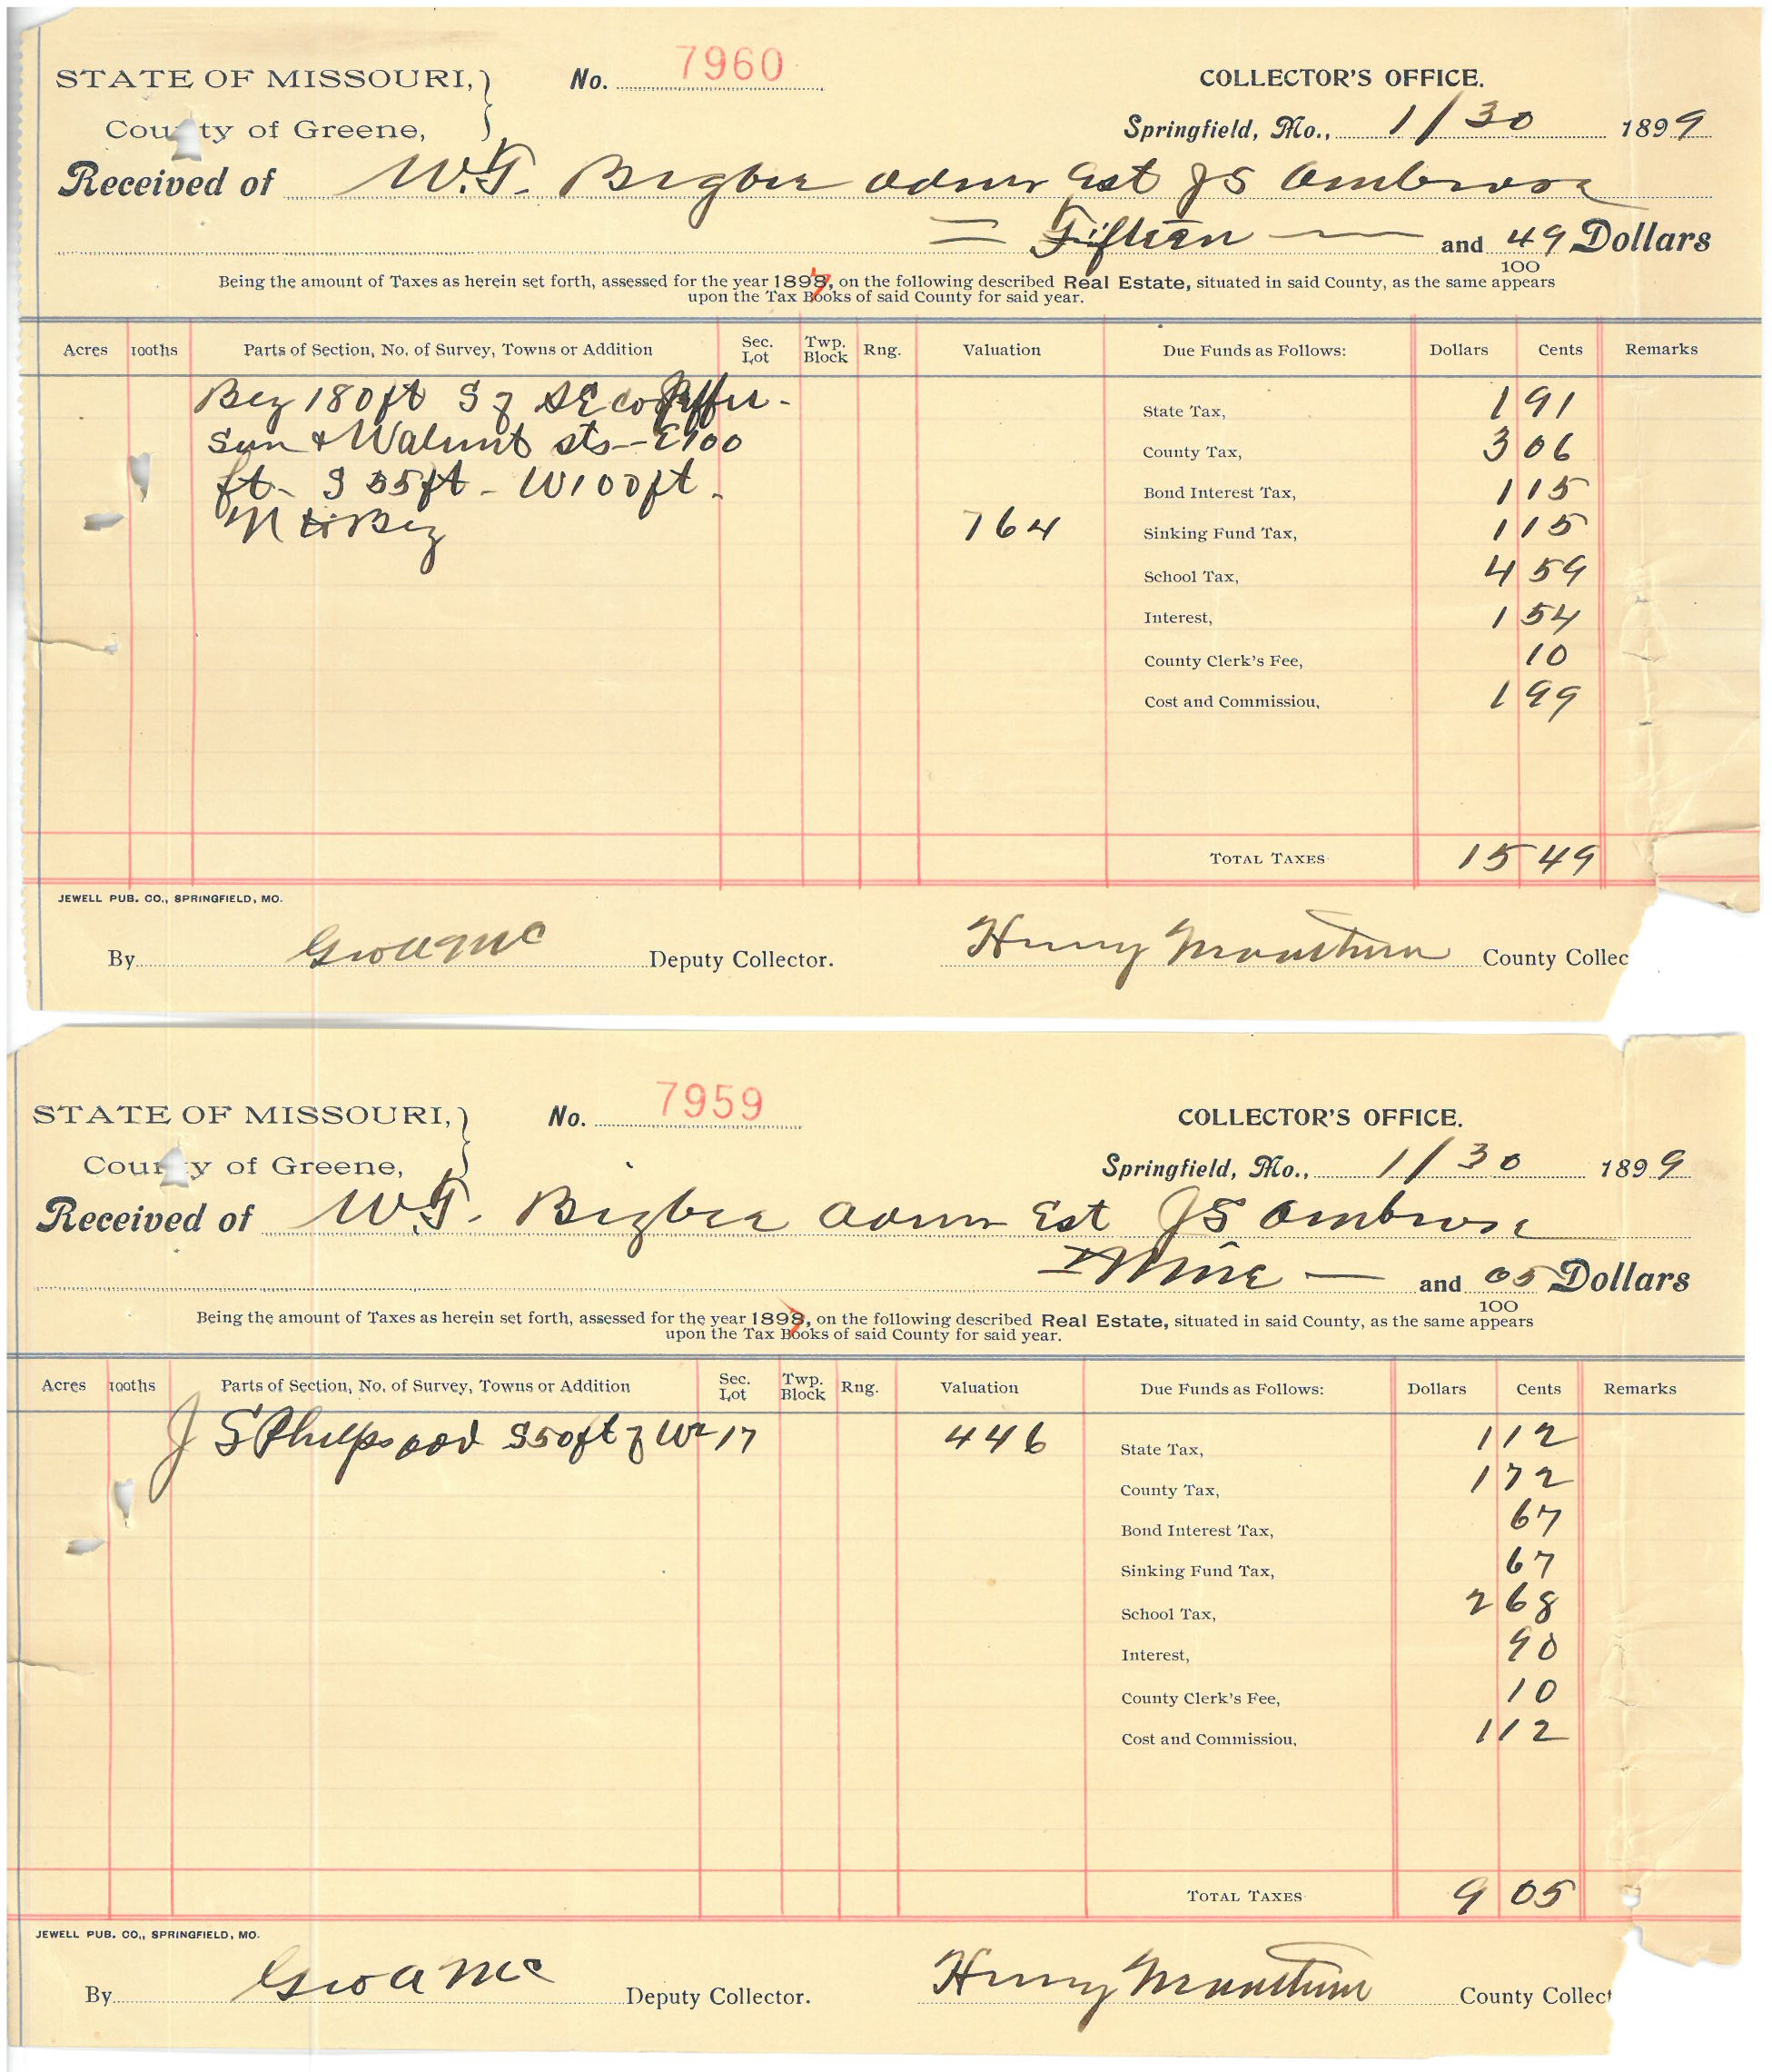 STATE OF MISSOURI, No. 7960 COLLECTOR'S OFFICE.
County of Greene, Springfield, Mo., 1/30 1899
Received of W.T. Bigbee admr Est J S Ambrose
= Fifteen — and 49/100 Dollars
Being the amount of Taxes as herein set forth, assessed for the year 1897, on the following described Real Estate, situated in said County, as the same appears
upon the Tax Books of said County for said year.
Acres 100ths Parts of Section, No. of Survey, Towns or Addition Sec. Lot Twp. Block Rng. Valuation Due Funds as Follows: Dollars Cents Remarks
Beg 180 ft S of SE co Jeffer-
son & Walnut sts - E 100
ft - S 55 ft - W 100 ft.
N to Beg 764
State Tax, 1 91
County Tax, 3 06
Bond Interest Tax, 1 15
Sinking Fund Tax, 1 15
School Tax, 4 59
Interest, 1 54
County Clerk's Fee, 10
Cost and Commission, 1 99
TOTAL TAXES 15 49
JEWELL PUB. CO., SPRINGFIELD, MO.
By Geo A Mc Deputy Collector. Henry County Collec
STATE OF MISSOURI, No. 7959 COLLECTOR'S OFFICE.
County of Greene, Springfield, Mo., 1/30 1899
Received of W.T. Bigbee admr Est J S Ambrose
Nine — and 05/100 Dollars
Being the amount of Taxes as herein set forth, assessed for the year 1897, on the following described Real Estate, situated in said County, as the same appears
upon the Tax Books of said County for said year.
Acres 100ths Parts of Section, No. of Survey, Towns or Addition Sec. Lot Twp. Block Rng. Valuation Due Funds as Follows: Dollars Cents Remarks
J S Phelps add S 50 ft of W 2 17 446
State Tax, 1 12
County Tax, 1 72
Bond Interest Tax, 67
Sinking Fund Tax, 67
School Tax, 2 68
Interest, 90
County Clerk's Fee, 10
Cost and Commission, 1 12
TOTAL TAXES 9 05
JEWELL PUB. CO., SPRINGFIELD, MO.
By Geo A Mc Deputy Collector. Henry County Collect